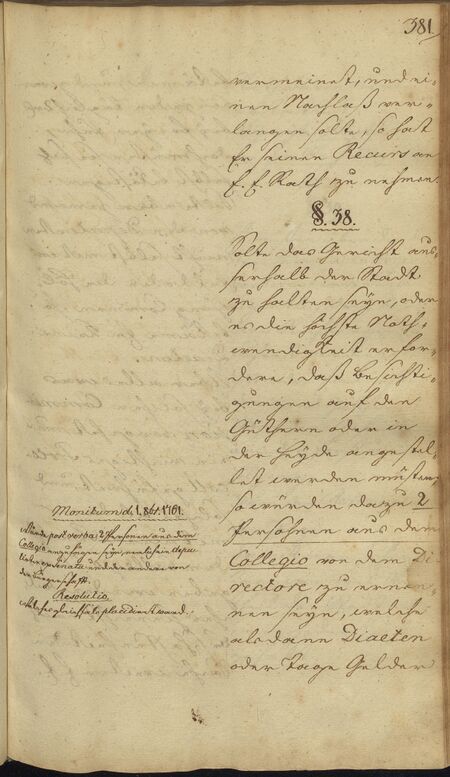 381.
vermeinet, und ei-
nen Nachlaß ver-
langen solte, so hat
Er seinen Recurs an
E. E. Rath zu nehmen.
§. 38.
Solte das Gericht aus-
serhalb der Stadt
zu halten seyn, oder
es die höchste Noth-
wendigkeit erfor-
dere, daß Besichti-
gungen auf den
Güthern oder in
der Heyde angestel-
let werden müsten,
so würden dazu 2
Persohnen aus dem
Collegio von dem Di
rectore zu ernen-
nen seyn, welche
alsdann Diaeten
oder Tage Gelder
Monitum d. 1. 1761.
post verba: 2 Personen aus dem
Collegio seyn,
und der andere von
der Bürgerschafft.
Resolutio.